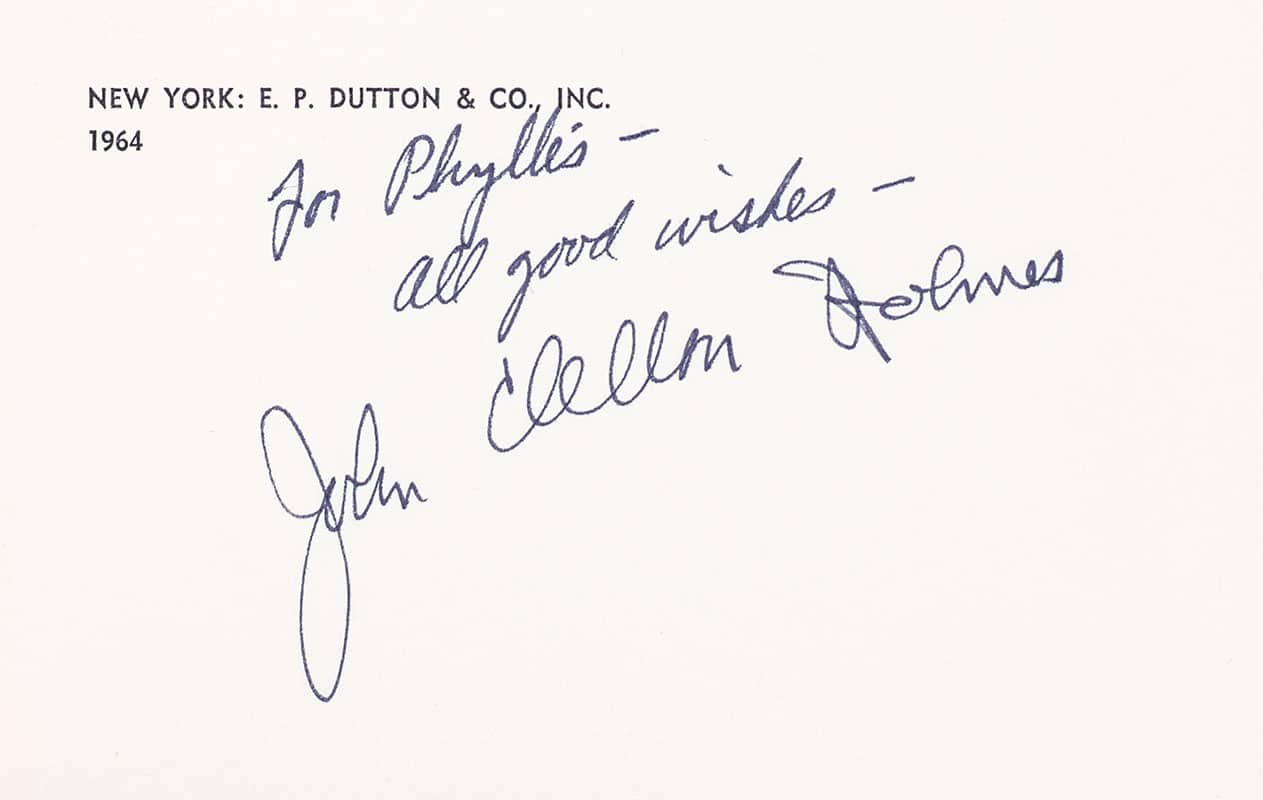 NEW YORK: E. P. DUTTON & CO., INC.
1964
For Phyllis –
all good wishes –
John Clellon Holmes